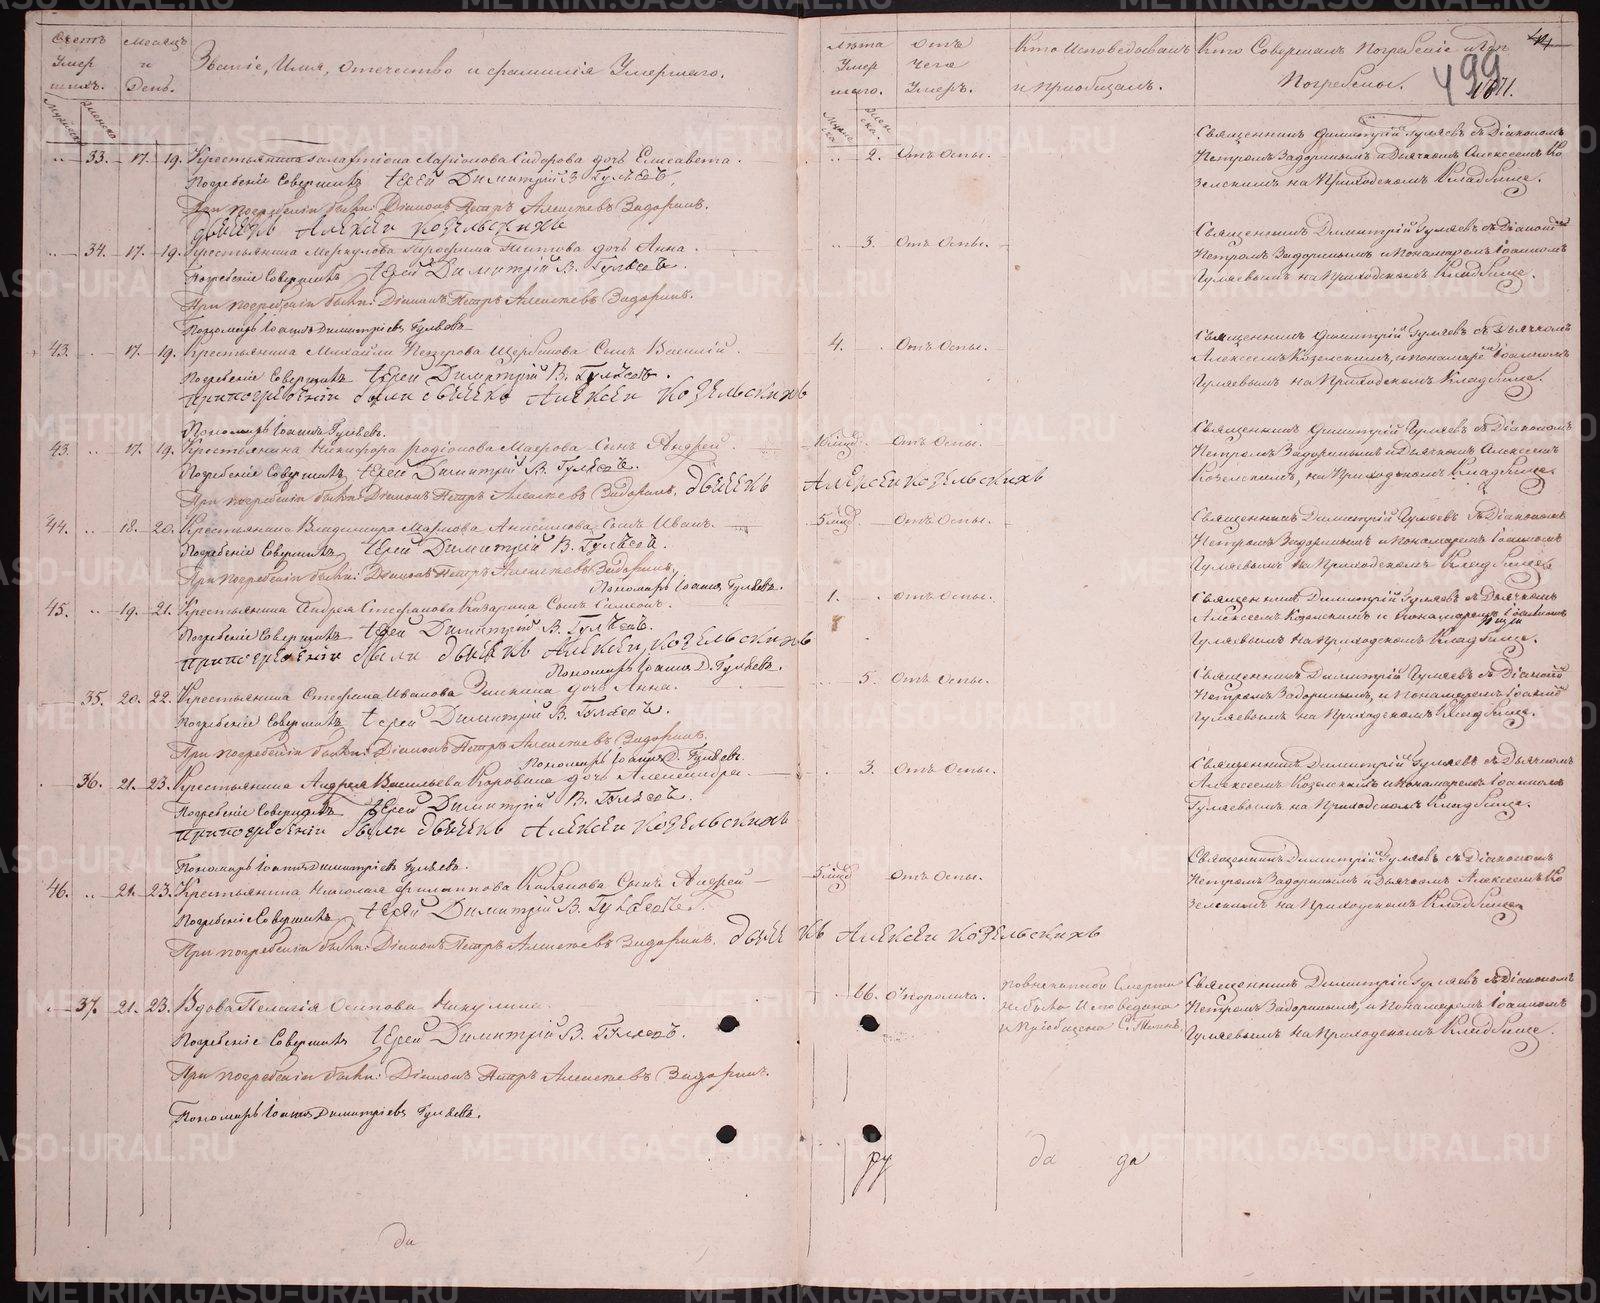 Счетъ
Умер
шихъ.
Мужеска
Женска
Месяцъ
и
День.
Званіе, Имя, Отечество и фамилія Умершаго.
Лѣта
Умер
шаго.
Отъ
Чего
Умеръ.
Кто Исповедывалъ
и Пріобщалъ.
Кто Совершалъ Погребеніе и Где
Погребены.
499
33. 17. 19. Крестьянина Марionова Сидорова дочь Елисавета. 2. Отъ Оспы.
Погребеніе Совершалъ Іерей Димитрій В. Гуляевъ.
При погребеніи были: Діаконъ Петръ Алексѣевъ Задоринъ.
Дьячекъ Алексей Козельскихъ
Священникъ Димитрій Гуляевъ съ Діакономъ
Петромъ Задоринымъ и Дьячкомъ Алексеемъ Ко
зелскимъ на Приходскомъ Кладбище.
34. 17. 19. Крестьянина Меркулова Трофима Титова дочь Анна. 3. Отъ Оспы.
Погребеніе Совершалъ Іерей Димитрій В. Гуляевъ.
При погребеніи были: Діаконъ Петръ Алексѣевъ Задоринъ.
Пономарь Іоаннъ Димитріевъ Гуляевъ
Священникъ Димитрій Гуляевъ съ Діакономъ
Петромъ Задоринымъ и Пономаремъ Іоанномъ
Гуляевымъ на Приходскомъ Кладбище.
43. 17. 19. Крестьянина Михайли Щербакова Сынъ Василій. 4. Отъ Оспы.
Погребеніе Совершалъ Іерей Димитрій В. Гуляевъ.
При погребеніи были дьячекъ Алексей Козельскихъ
Пономарь Іоаннъ Гуляевъ.
Священникъ Димитрій Гуляевъ съ Дьячкомъ
Алексеемъ Козелскимъ, и пономаремъ Іоанномъ
Гуляевымъ на Приходскомъ Кладбище.
43. 17. 19. Крестьянина Никифора Родіонова Сынъ Андрей. Отъ Оспы.
Погребеніе Совершалъ Іерей Димитрій В. Гуляевъ.
При погребеніи были: Діаконъ Петръ Алексѣевъ Задоринъ. дьячекъ Алексеи Козельскихъ
Священникъ Димитрій Гуляевъ съ Діакономъ
Петромъ Задоринымъ и Дьячкомъ Алексеемъ
Козелскимъ, на Приходскомъ Кладбище
44. 18. 20. Крестьянина Владимира Анисимова Сынъ Иванъ. 5 Отъ Оспы.
Погребеніе Совершалъ Іерей Димитрій В. Гуляевъ.
При погребеніи были: Діаконъ Петръ Алексѣевъ Задоринъ,
Пономарь Іоаннъ Гуляевъ.
Священникъ Димитрій Гуляевъ съ Діакономъ
Петромъ Задоринымъ и Пономаремъ Іоанномъ
Гуляевымъ на Приходскомъ Кладбище
45. 19. 21. Крестьянина Андрея Стефанова Казарина Сынъ Симеонъ. 1. Отъ Оспы.
Погребеніе Совершалъ Іерей Димитрій В. Гуляевъ.
При погребеніи были дьячекъ Алексеи Козельскихъ
Пономарь Іоаннъ Д. Гуляевъ.
Священникъ Димитрій Гуляевъ съ Дьячкомъ
Алексеемъ Козелскимъ и пономаремъ Іоанномъ
Гуляевымъ на Приходскомъ Кладбище.
35. 20. 22. Крестьянина Стефана Иванова дочь Анна. 5. Отъ Оспы.
Погребеніе Совершалъ Іерей Димитрій В. Гуляевъ.
При погребеніи были: Діаконъ Петръ Алексѣевъ Задоринъ.
Пономарь Іоаннъ Д. Гуляевъ.
Священникъ Димитрій Гуляевъ съ Діаконом
Петромъ Задоринымъ, и Пономаремъ Іоанном
Гуляевымъ на Приходскомъ Кладбище.
36. 21. 23. Крестьянина Андрея Васильева Коровина дочь Александра. 3. Отъ Оспы.
Погребеніе Совершалъ Іерей Димитрій В. Гуляевъ.
При погребеніи были дьячекъ Алексеи Козельскихъ
Пономарь Іоаннъ Димитріевъ Гуляевъ.
Священникъ Димитрій Гуляевъ съ Дьячкомъ
Алексеемъ Козелскимъ и пономаремъ Іоанномъ
Гуляевымъ на Приходскомъ Кладбище.
46. 21. 23. Крестьянина Николая Филиппова Сынъ Андрей 5 Отъ Оспы.
Погребеніе Совершалъ Іерей Димитрій В. Гуляевъ.
При погребеніи были: Діаконъ Петръ Алексѣевъ Задоринъ. дьячекъ Алексеи Козельскихъ
Священникъ Димитрій Гуляевъ съ Діакономъ
Петромъ Задоринымъ и Дьячкомъ Алексеемъ Ко
зелскимъ на Приходскомъ Кладбище
37. 21. 23. Вдова Пелагія Осипова Никулина. 46.
Погребеніе Совершалъ Іерей Димитрій В. Гуляевъ.
При погребеніи были: Діаконъ Петръ Алексѣевъ Задоринъ.
Пономарь Іоаннъ Димитріевъ Гуляевъ.
По внезапной Смерти
не была Исповедана
и Пріобщена С. Таинъ.
Священникъ Димитрій Гуляевъ съ Діакономъ
Петромъ Задоринымъ, и Пономаремъ Іоанномъ
Гуляевымъ на Приходскомъ Кладбище.
ру да да
да
METRIKI.GASO-URAL.RU